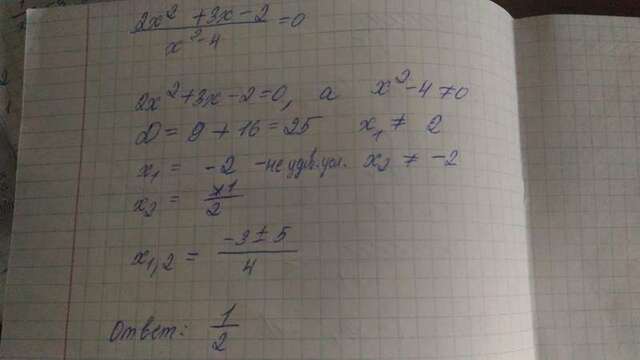 2x² + 3x - 2 / x² - 4 = 0
2x² + 3x - 2 = 0, а x² - 4 ≠ 0
D = 9 + 16 = 25 x₁ ≠ 2
x₁ = -2 - не удв. усл. x₂ ≠ -2
x₂ = 1/2
x₁,₂ = -3 ± 5 / 4
Ответ: 1/2